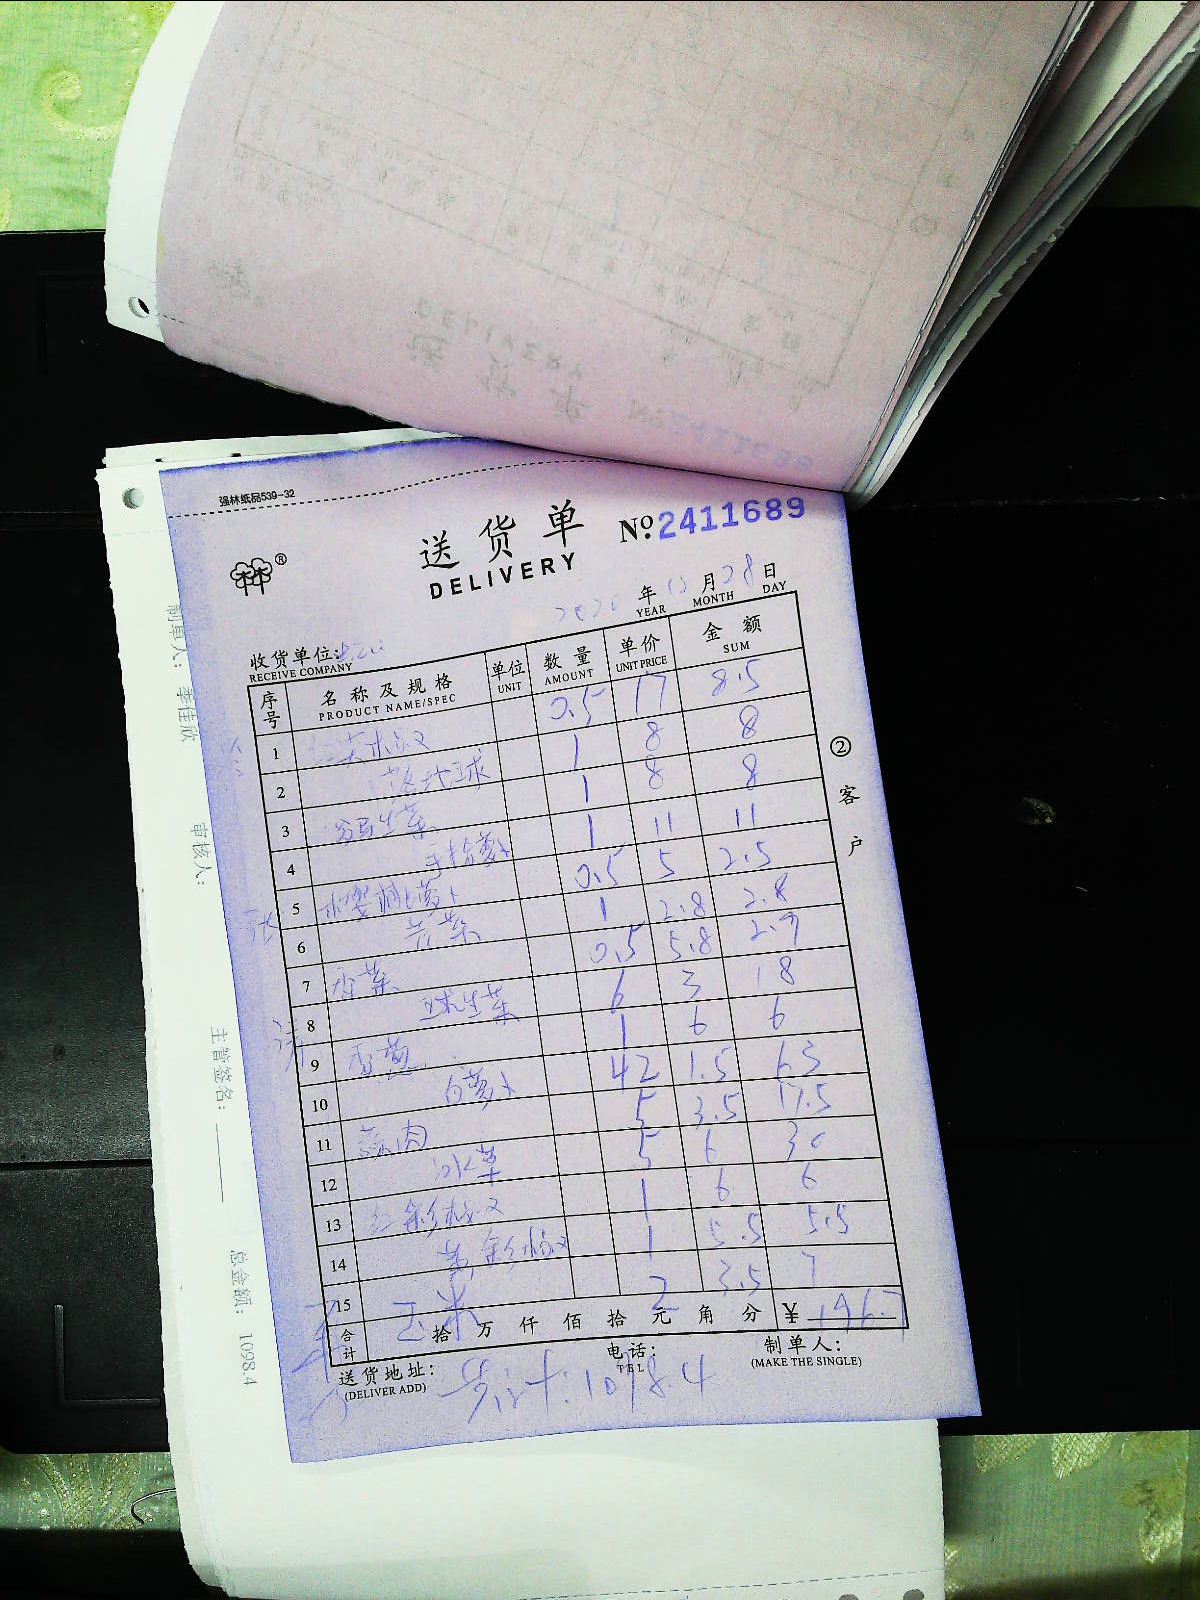 强林纸品539-32
送货单 №:2411689
DELIVERY
年 月28日
YEAR MONTH DAY
收货单位:
RECEIVE COMPANY
序号 名称及规格 单位 数量 单价 金额
PRODUCT NAME/SPEC UNIT AMOUNT UNIT PRICE SUM
1 0.5 17 8.5
2 1 8 8
3 生菜 1 8 8
4 手指萝卜 1 11 11
5 萝卜 0.5 5 2.5
6 1 2.8 2.8
7 香菜 0.5 5.8 2.9
8 球生菜 6 3 18
9 香葱 1 6 6
10 白萝卜 42 1.5 63
11 蒜肉 5 3.5 17.5
12 5 6 30
13 红彩椒 1 6 6
14 黄彩椒 1 5.5 5.5
15 玉米 2 3.5 7
合计 拾 万 仟 佰 拾 元 角 分 ¥196.7
送货地址:
(DELIVER ADD)
电话:
TEL
制单人:
(MAKE THE SINGLE)
共计:1098.4
② 客户
制单人: 李佳欣
审核人:
主管签名:
总金额: 1098.4